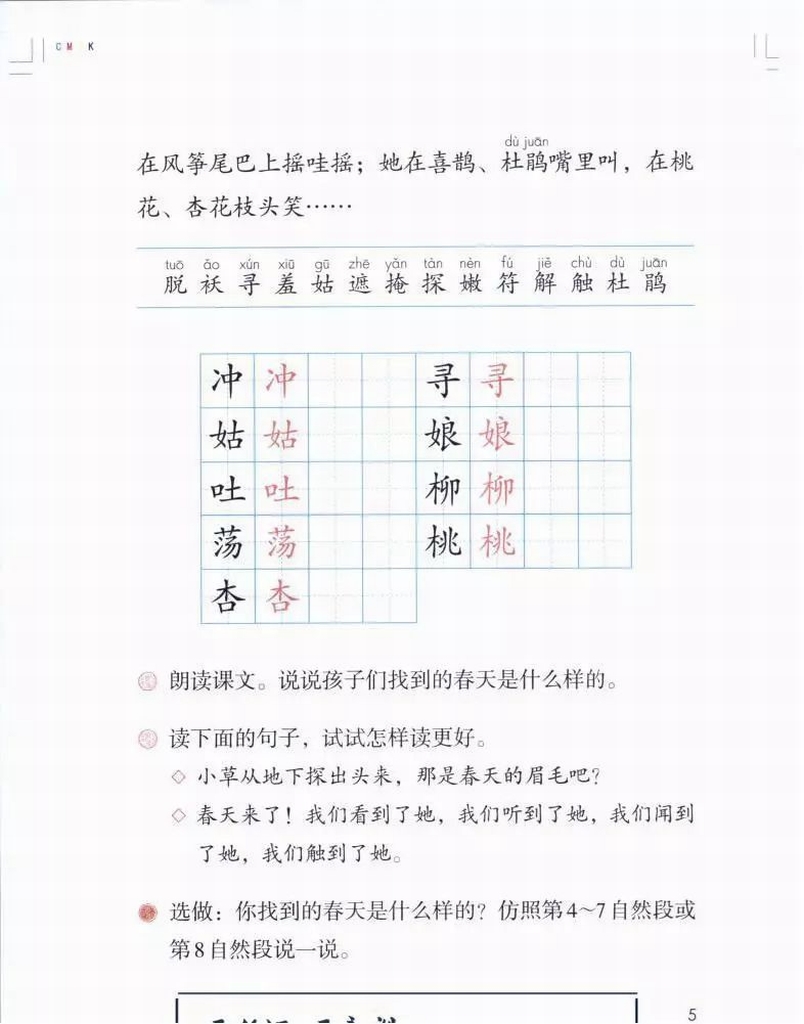 C M K
dù juān
在风筝尾巴上摇哇摇；她在喜鹊、杜鹃嘴里叫，在桃
花、杏花枝头笑……
tuō ǎo xún xiū gū zhē yǎn tàn nèn fú jiě chù dù juān
脱 袄 寻 羞 姑 遮 掩 探 嫩 符 解 触 杜 鹃
冲 冲 寻 寻
姑 姑 娘 娘
吐 吐 柳 柳
荡 荡 桃 桃
杏 杏
朗读课文。说说孩子们找到的春天是什么样的。
读下面的句子，试试怎样读更好。
◇ 小草从地下探出头来，那是春天的眉毛吧？
◇ 春天来了！我们看到了她，我们听到了她，我们闻到
了她，我们触到了她。
选做：你找到的春天是什么样的？仿照第4～7自然段或
第8自然段说一说。
5